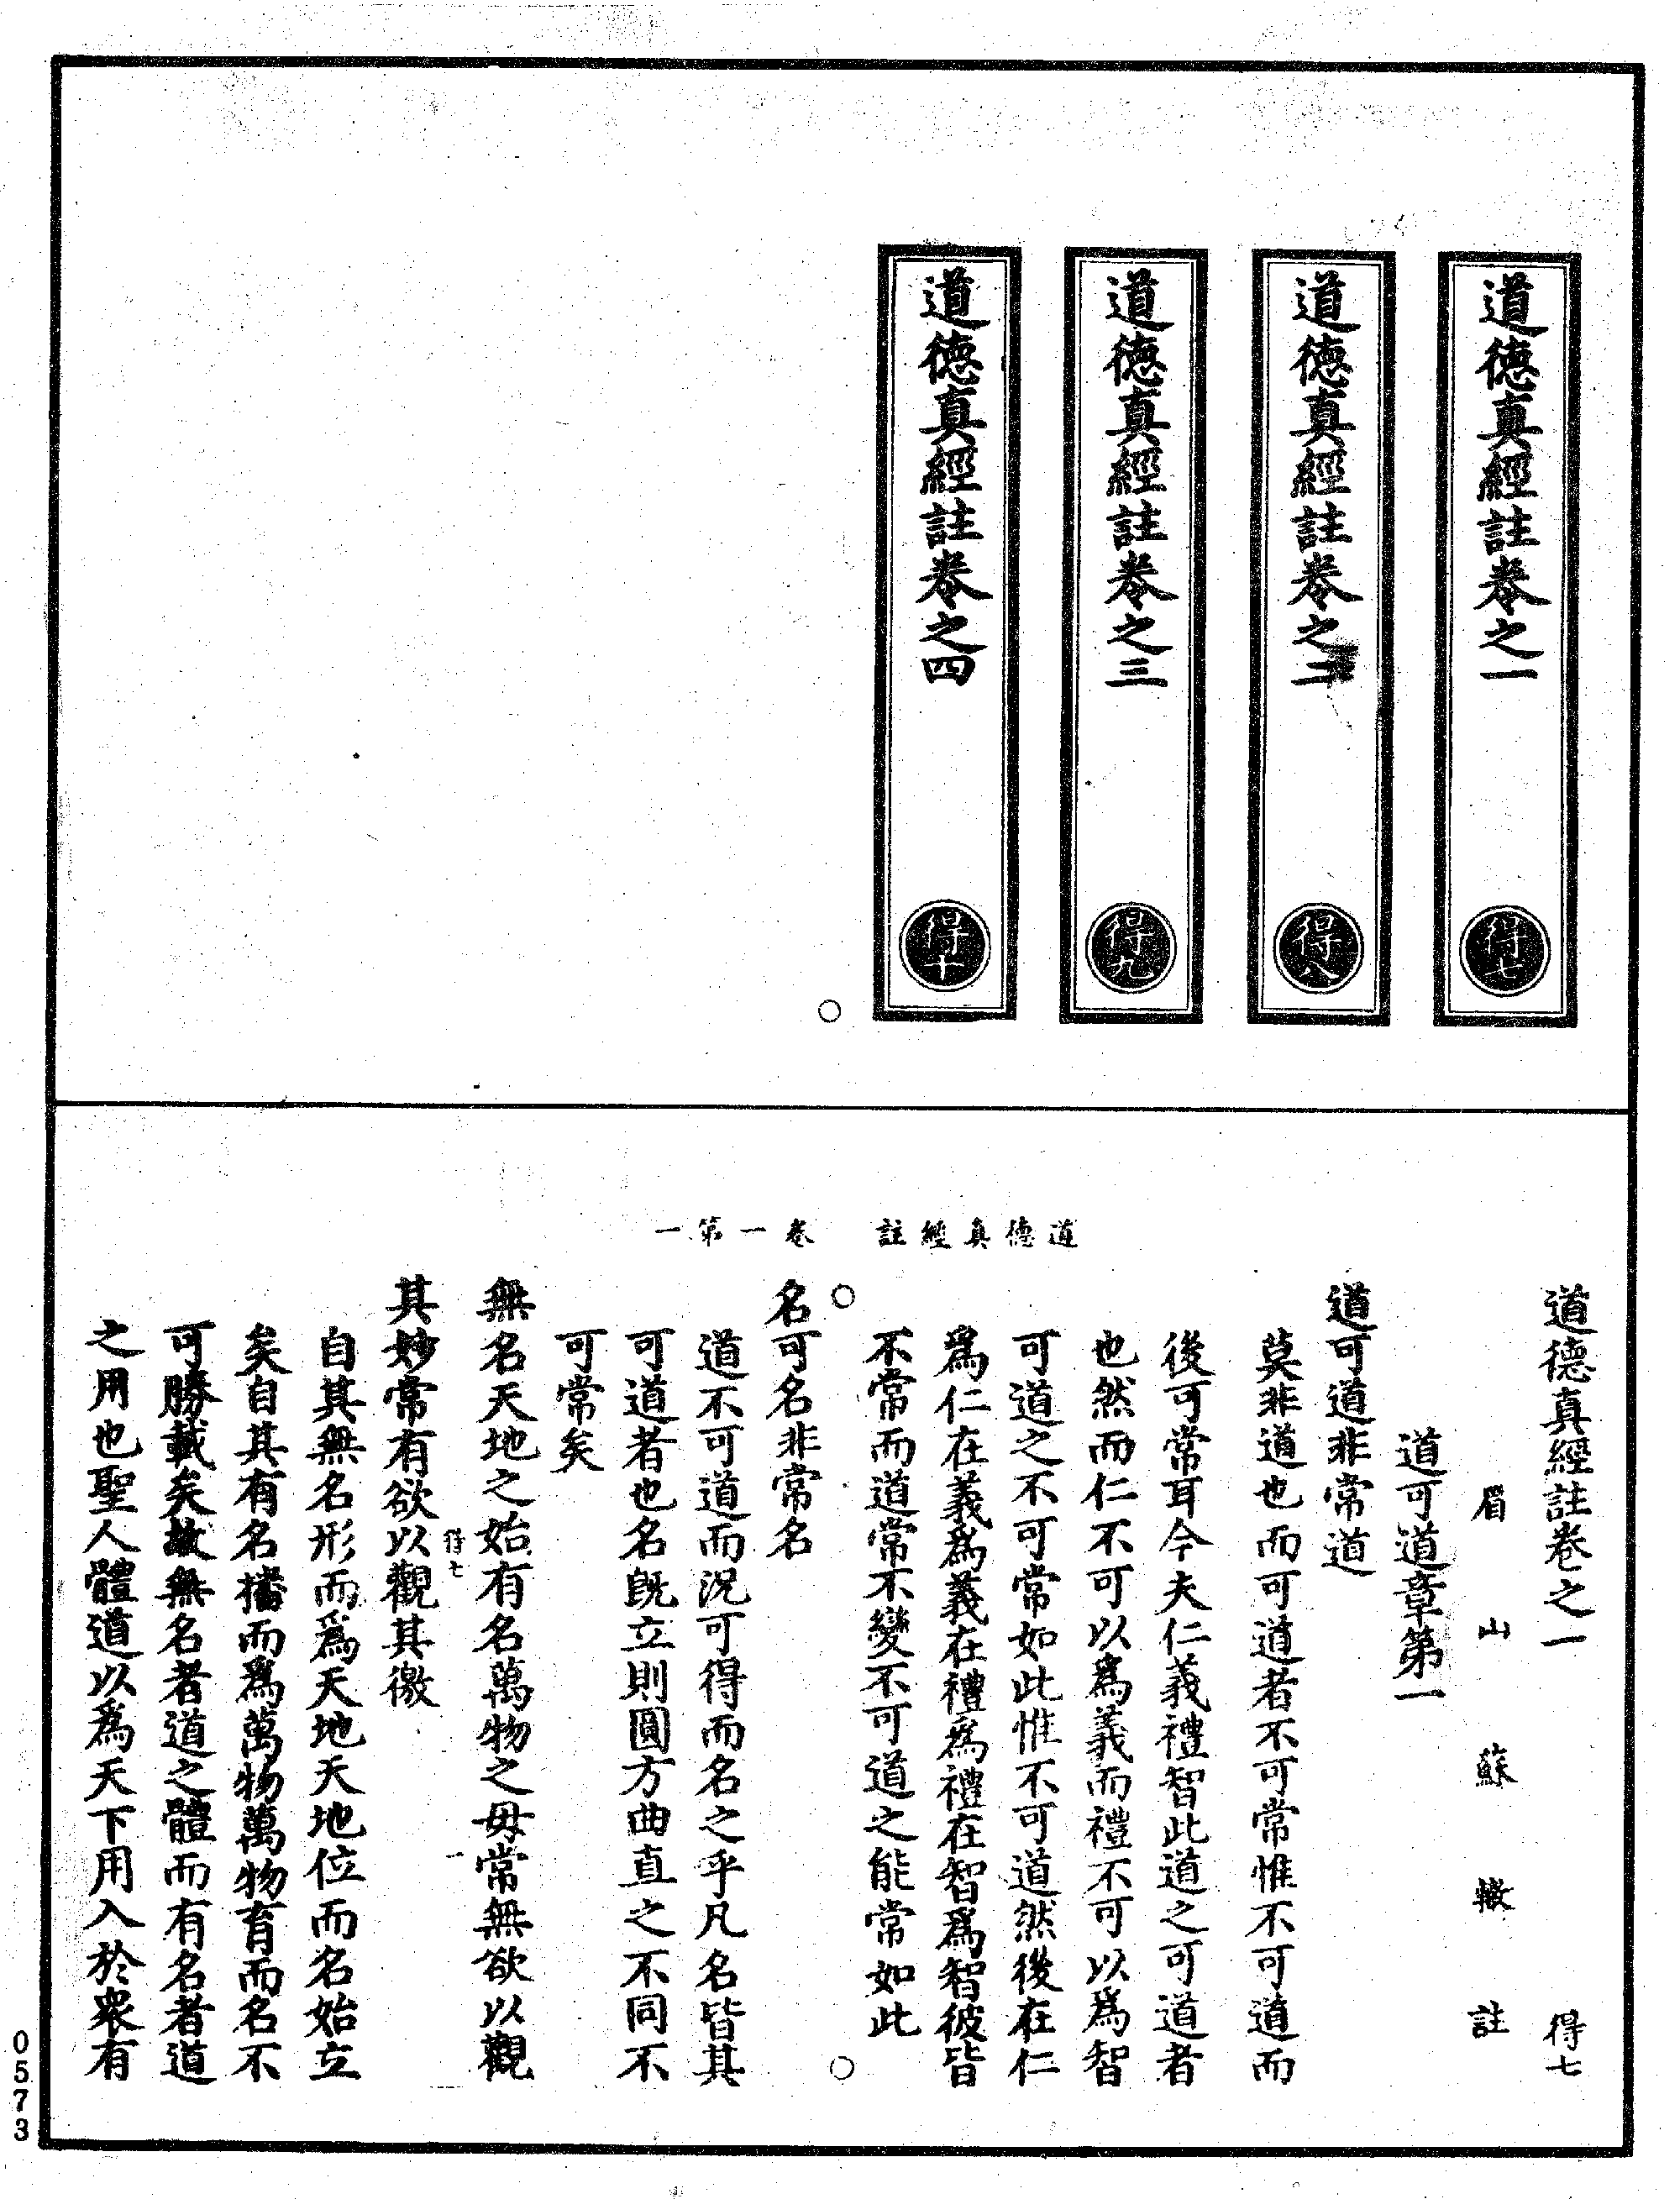 道德真經註卷之一
得七
道德真經註卷之二
得八
道德真經註卷之三
得九
道德真經註卷之四
得十
道德真經註 卷一第一
道德真經註卷之一 得七
眉山蘇轍註
道可道章第一
道可道非常道
莫非道也而可道者不可常惟不可道而
後可常耳今夫仁義禮智此道之可道者
也然而仁不可以為義而禮不可以為智
可道之不可常如此惟不可道然後在仁
為仁在義為義在禮為禮在智為智彼皆
不常而道常不變不可道之能常如此
名可名非常名
道不可道而況可得而名之乎凡名皆其
可道者也名既立則圓方曲直之不同不
可常矣
無名天地之始有名萬物之母常無欲以觀
得七 一
其妙常有欲以觀其徼
自其無名形而為天地天地位而名始立
矣自其有名播而為萬物萬物育而名不
可勝載矣故無名者道之體而有名者道
之用也聖人體道以為天下用入於衆有
0573